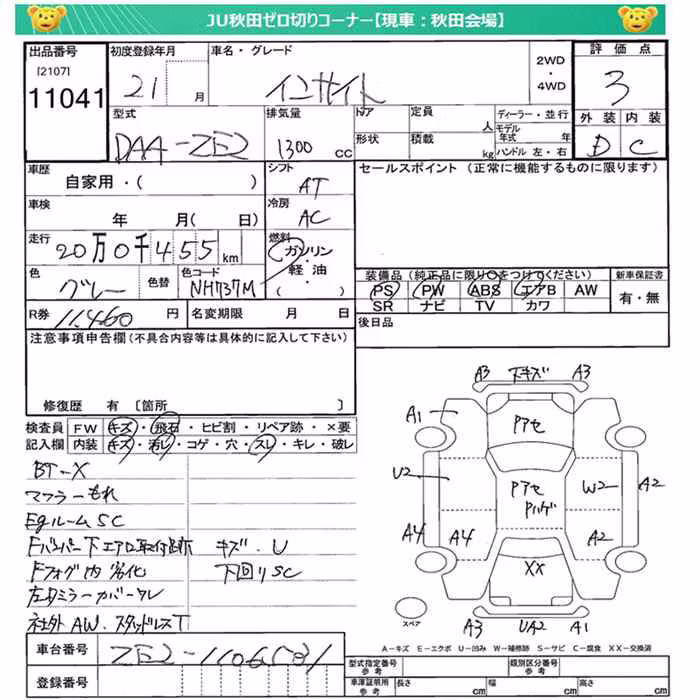 JU秋田ゼロ切りコーナー【現車：秋田会場】
出品番号
[2107]
11041
初度登録年月
21 月
車名・グレード
インサイト
2WD
・
4WD
評価点
3
外装 内装
D C
型式
DAA-ZE2
排気量
1300 cc
ドア
形状
定員 人
積載 kg
ディーラー・並行
モデル年式 年
ハンドル 左・右
車歴
自家用・( )
シフト
AT
セールスポイント (正常に機能するものに限ります)
車検
年 月( 日)
冷房
AC
走行
20万0千455km
燃料
ガソリン
・
軽油
( )
色
グレー
色替
色コード
NH737M
装備品(純正品に限り○をつけてください)
新車保証書
PS PW ABS エアB AW
SR ナビ TV カワ
有・無
R券 11,460 円
名変期限 月 日
後日品
注意事項申告欄(不具合内容等は具体的に記入して下さい)
修復歴 有 〔箇所 〕
検査員 FW キズ・飛石・ヒビ割・リペア跡・×要
記入欄 内装 キズ・汚レ・コゲ・穴・スレ・キレ・破レ
BT-X
マフラーもれ
Egルーム SC
Fバンパー下エアロ取付跡 キズ．U
Fフォグ内 劣化 下回りSC
左ミラーカバーワレ
社外AW．スタッドレスT
A3 下キズ A3
A1
Pアセ
U2 Pアセ W2 A2
Pハゲ
A4 A4 A2
XX
スペア
A3 UA2 A1
A－キズ E－エクボ U－凹み W－補修跡 S－サビ C－腐食 XX－交換済
車台番号 ZE2-1106531
登録番号
型式指定番号 参考
類別区分番号 参考
車庫証明用 参考 長さ cm 幅 cm 高さ cm